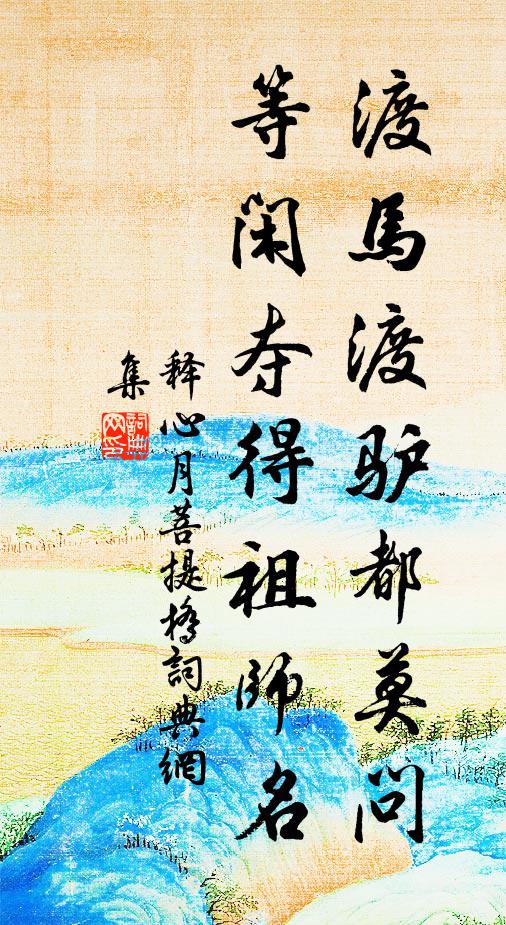 渡馬渡驴都莫问
等闲夺得祖師名
释心月菩提橋詞典網
集
詞典网印